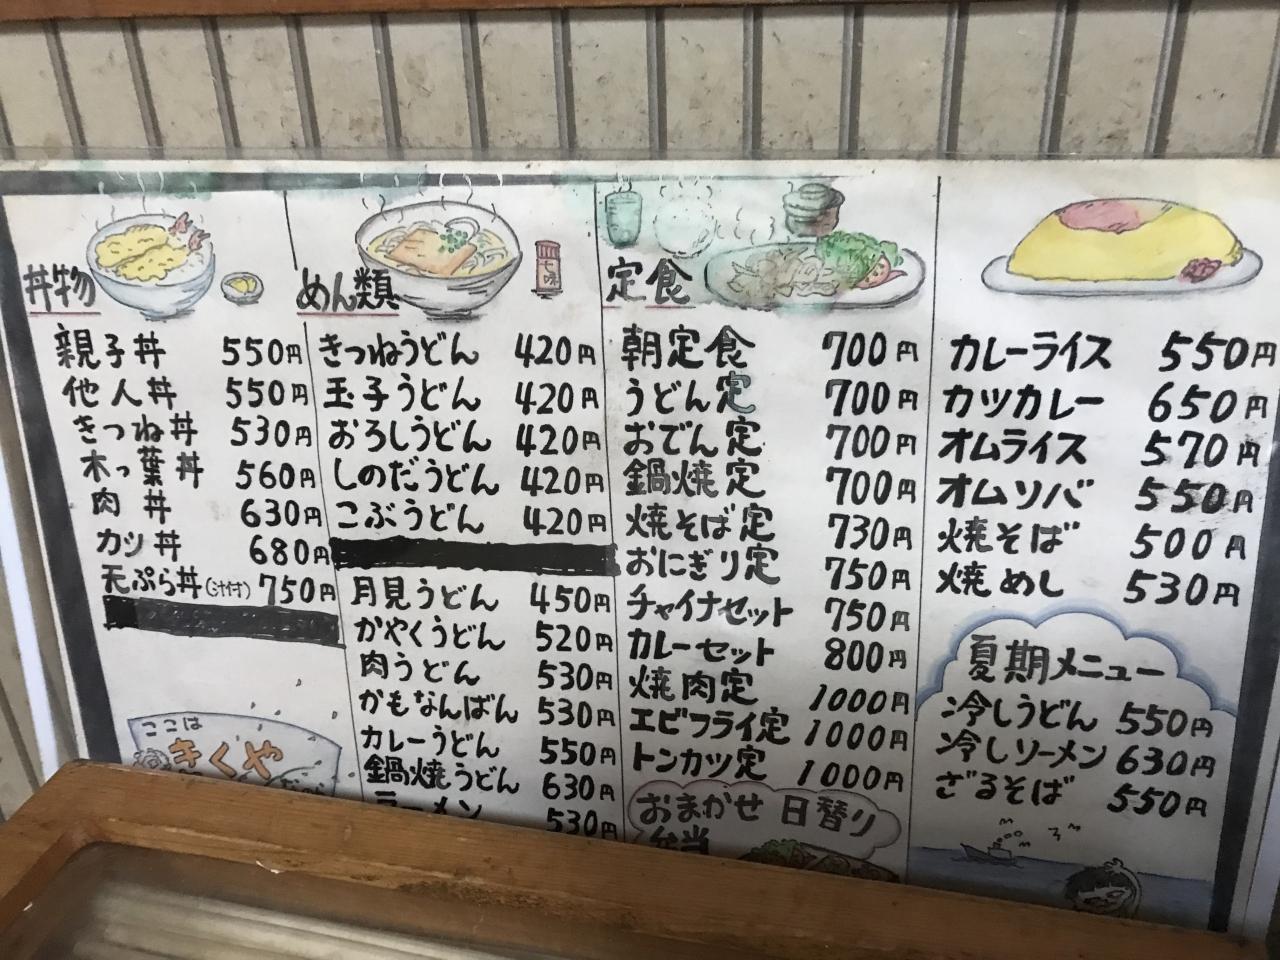 丼物
親子丼 550円
他人丼 550円
きつね丼 530円
木っ葉丼 560円
肉丼 630円
カツ丼 680円
天ぷら丼(汁付) 750円
ここは
きくや
めん類
七味
きつねうどん 420円
玉子うどん 420円
おろしうどん 420円
しのだうどん 420円
こぶうどん 420円
月見うどん 450円
かやくうどん 520円
肉うどん 530円
かもなんばん 530円
カレーうどん 550円
鍋焼うどん 630円
ラーメン 530円
定食
朝定食 700円
うどん定 700円
おでん定 700円
鍋焼定 700円
焼そば定 730円
おにぎり定 750円
チャイナセット 750円
カレーセット 800円
焼肉定 1000円
エビフライ定 1000円
トンカツ定 1000円
おまかせ 日替り
弁当
カレーライス 550円
カツカレー 650円
オムライス 570円
オムソバ 550円
焼そば 500円
焼めし 530円
夏期メニュー
冷しうどん 550円
冷しソーメン 630円
ざるそば 550円